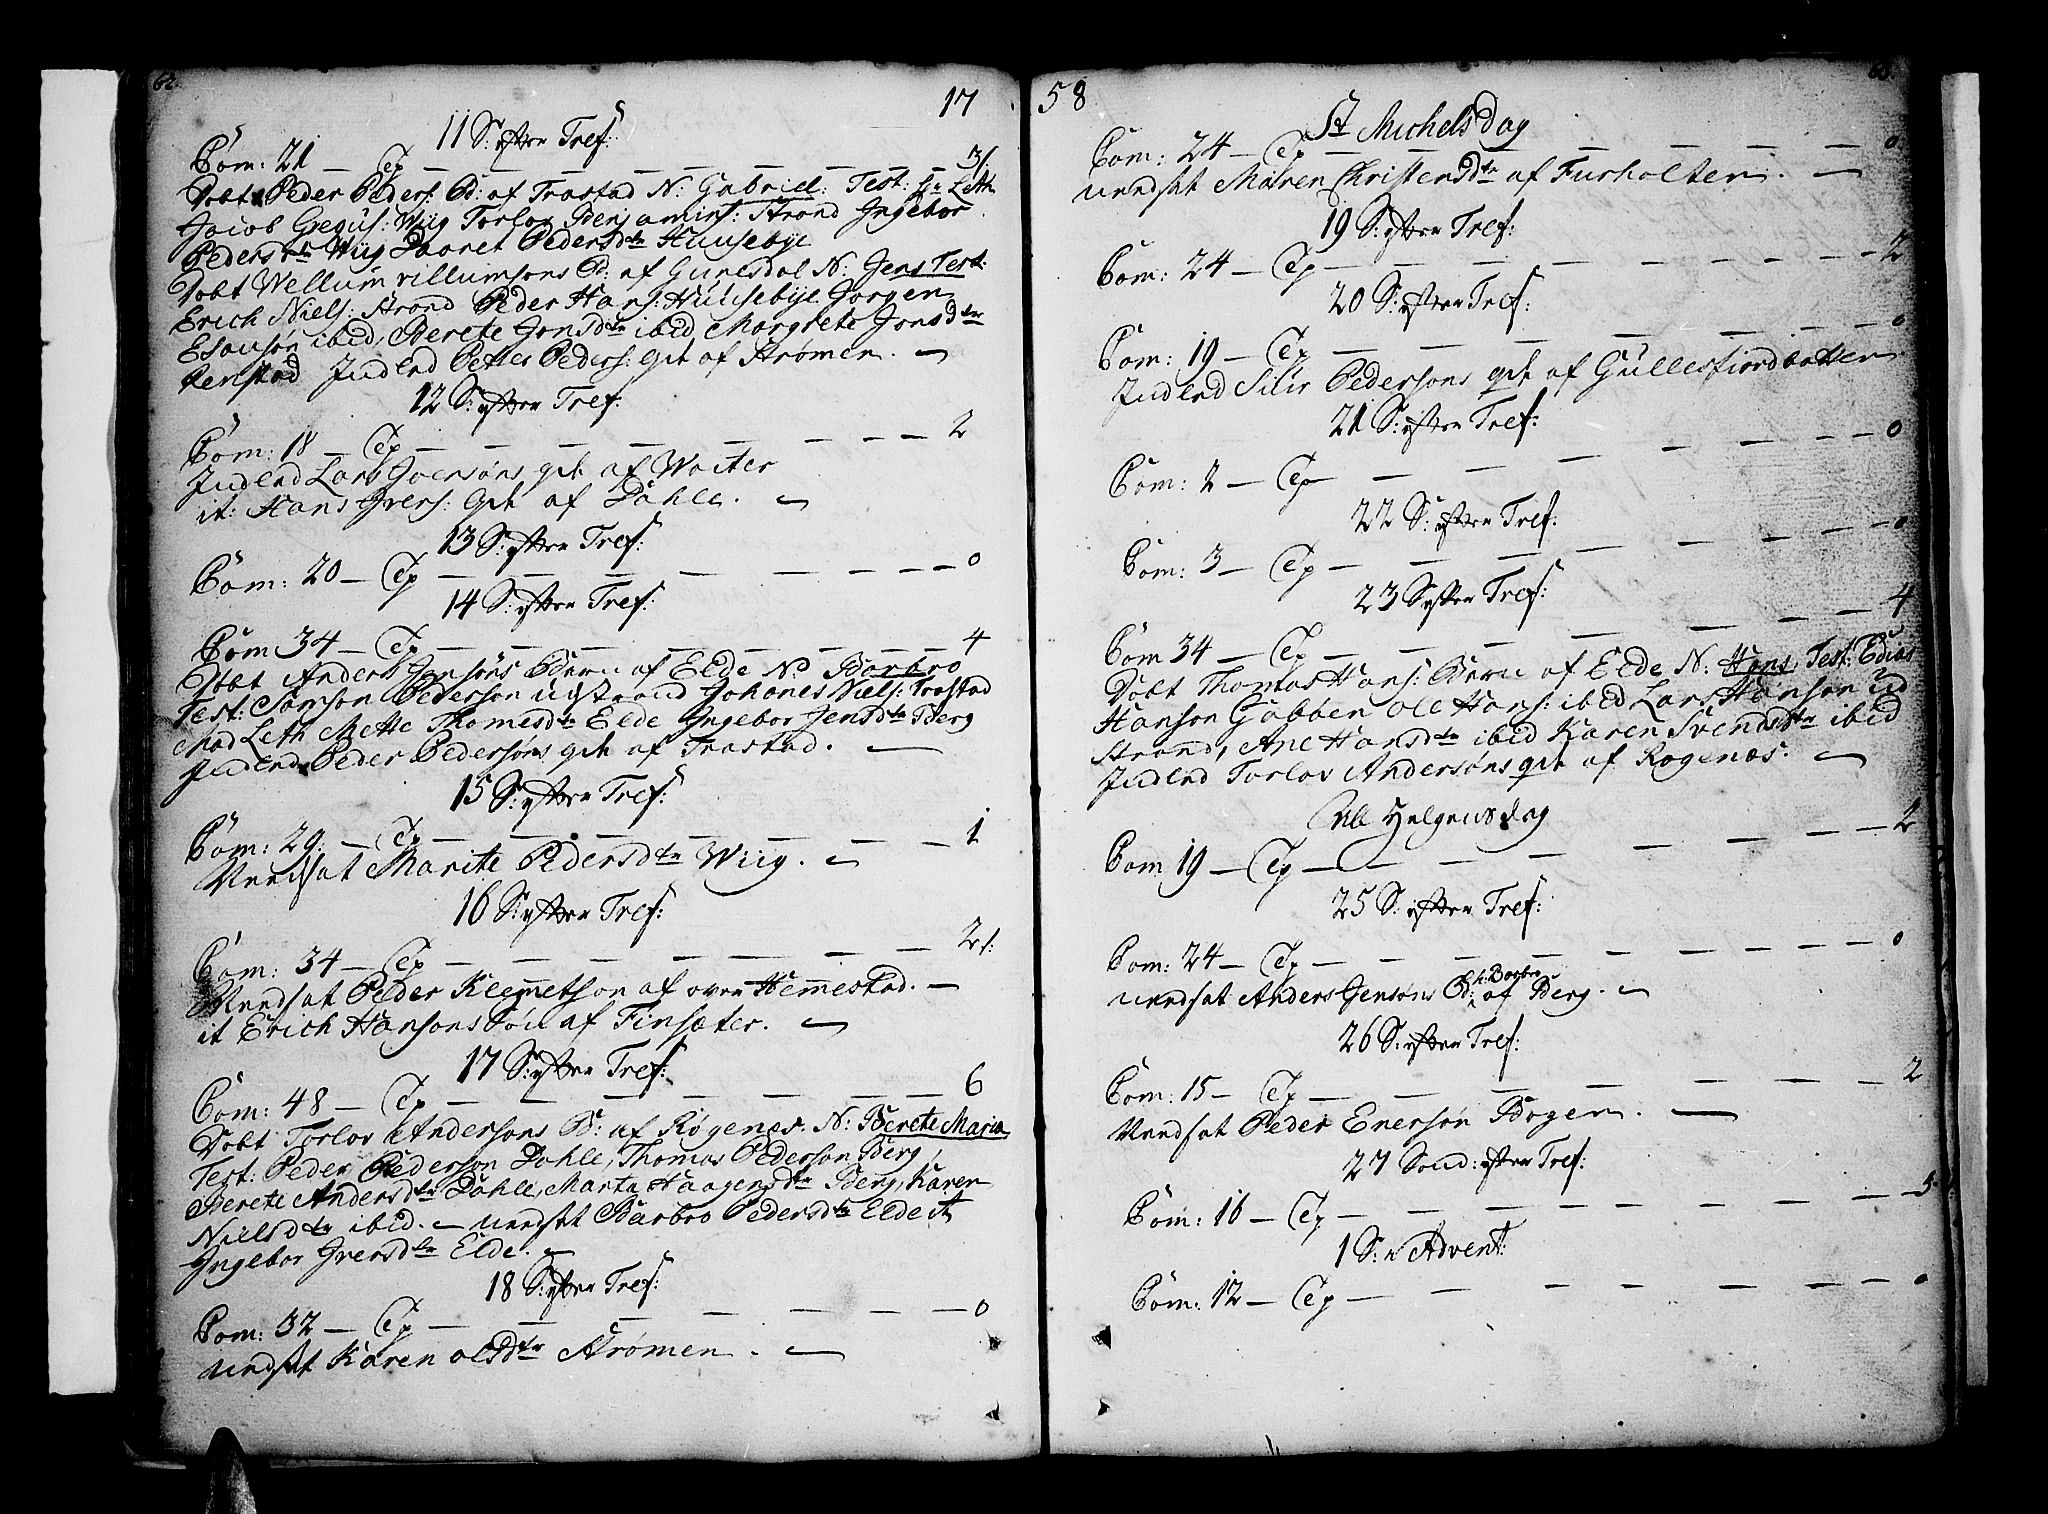 62.
17
11 S: efter Tref:
Com: 21 — Ep — 3/.
Døbt Peder Peders: B: af Trastad N: Gabriel: Test: Hr Leth
Jacob Gregus: Wiig Torlov Benjamins: Strand Ingebor
Pedersdtr Wiig Maret Pedersdtr Huusebye
Døbt Vellum villumsons B: af Gunesdal N: Jens Test:
Erich Niels: Strand Peder Hans: Huusebye Jørgen
Esauson ibid, Berete Jonsdtr ibid Margrete Jonsdtr
Renstad Indled Petter Peders: qvt af Strømen. —
12 S: efter Tref:
Com: 18 — Ep — 2
Indled Lars Joensøns qvt af Woiter
it: Hans Ivers: qvt af Dahle. —
13 S: efter Tref:
Com: 20 — Ep — 0
14 S: efter Tref:
Com 34 — Ep — 4
Døbt Anders Jensøns Barn af Elde N: Barbro
Test: Samson Pederson udstrand Johanes Niels: Trastad
Mad Leth Mette Thomesdtr Elde Ingebor Jensdtr Berg
Indled Peder Pedersøns qvt af Trastad. —
15 S: efter Tref:
Com: 29. — Ep — 1
Undsat Marite Pedersdtr Wiig. —
16 S: efter Tref:
Com: 34 — Ep — 2/:
Undsat Peder Klemetson af over Hemestad. —
it Erich Hansons Søn af Finsæter. —
17 S: efter Tref:
Com: 48 — Ep — 6
Døbt Torlov Andersons B: af Røgenæs: N: Berete Maria
Test: Peder Pederson Dahle, Thomas Pederson Berg,
Berete Andersdtr Dahle, Marta Haagensdtr Berg, Karen
Nielsdtr ibid. — undsat Barbro Pedersdtr Elde it
Ingebor Iversdtr Elde. —
18 S: efter Tref:
Com: 32 — Ep — 0
undsat Karen olsdtr Strømen. —
58
St Michels Dag
Com: 24 — Ep — 0
undsat Maren Christensdtr af Furholten. —
19 S: efter Tref:
Com: 24 — Ep — 2
20 S: efter Tref:
Com: 19 — Ep — 0
Indled Siur Pedersons qvt af Gullesfiordbotten.
21 S: efter Tref:
Com: 2 — Ep — 0
22 S: efter Tref:
Com: 3 — Ep — 0
23 S efter Tref:
Com 34 — Ep — 4
Døbt Thomas Hans: Barn af Elde N: Hans, Test: Edias
Hanson Gabben Ole Hans: ibid Lars Hanson ud
strand, Ane Hansdtr ibid Karen Svendsdtr ibid
Indled Torlov Andersøns qvt af Rogenæs. —
All Helgens dag
Com 19 — Ep — 2
25 S: efter Tref:
Com: 24 — Ep — 0
undsat Anders Jensøns B: n: Barbro af Berg. —
26 S: efter Tref:
Com: 15 — Ep — 2
Undsat Peder Enersøn Bogen. —
27 Sond: efter Tref:
Com: 16 — Ep — 5
1 S: i Advent:
Com: 12 — Ep — 0